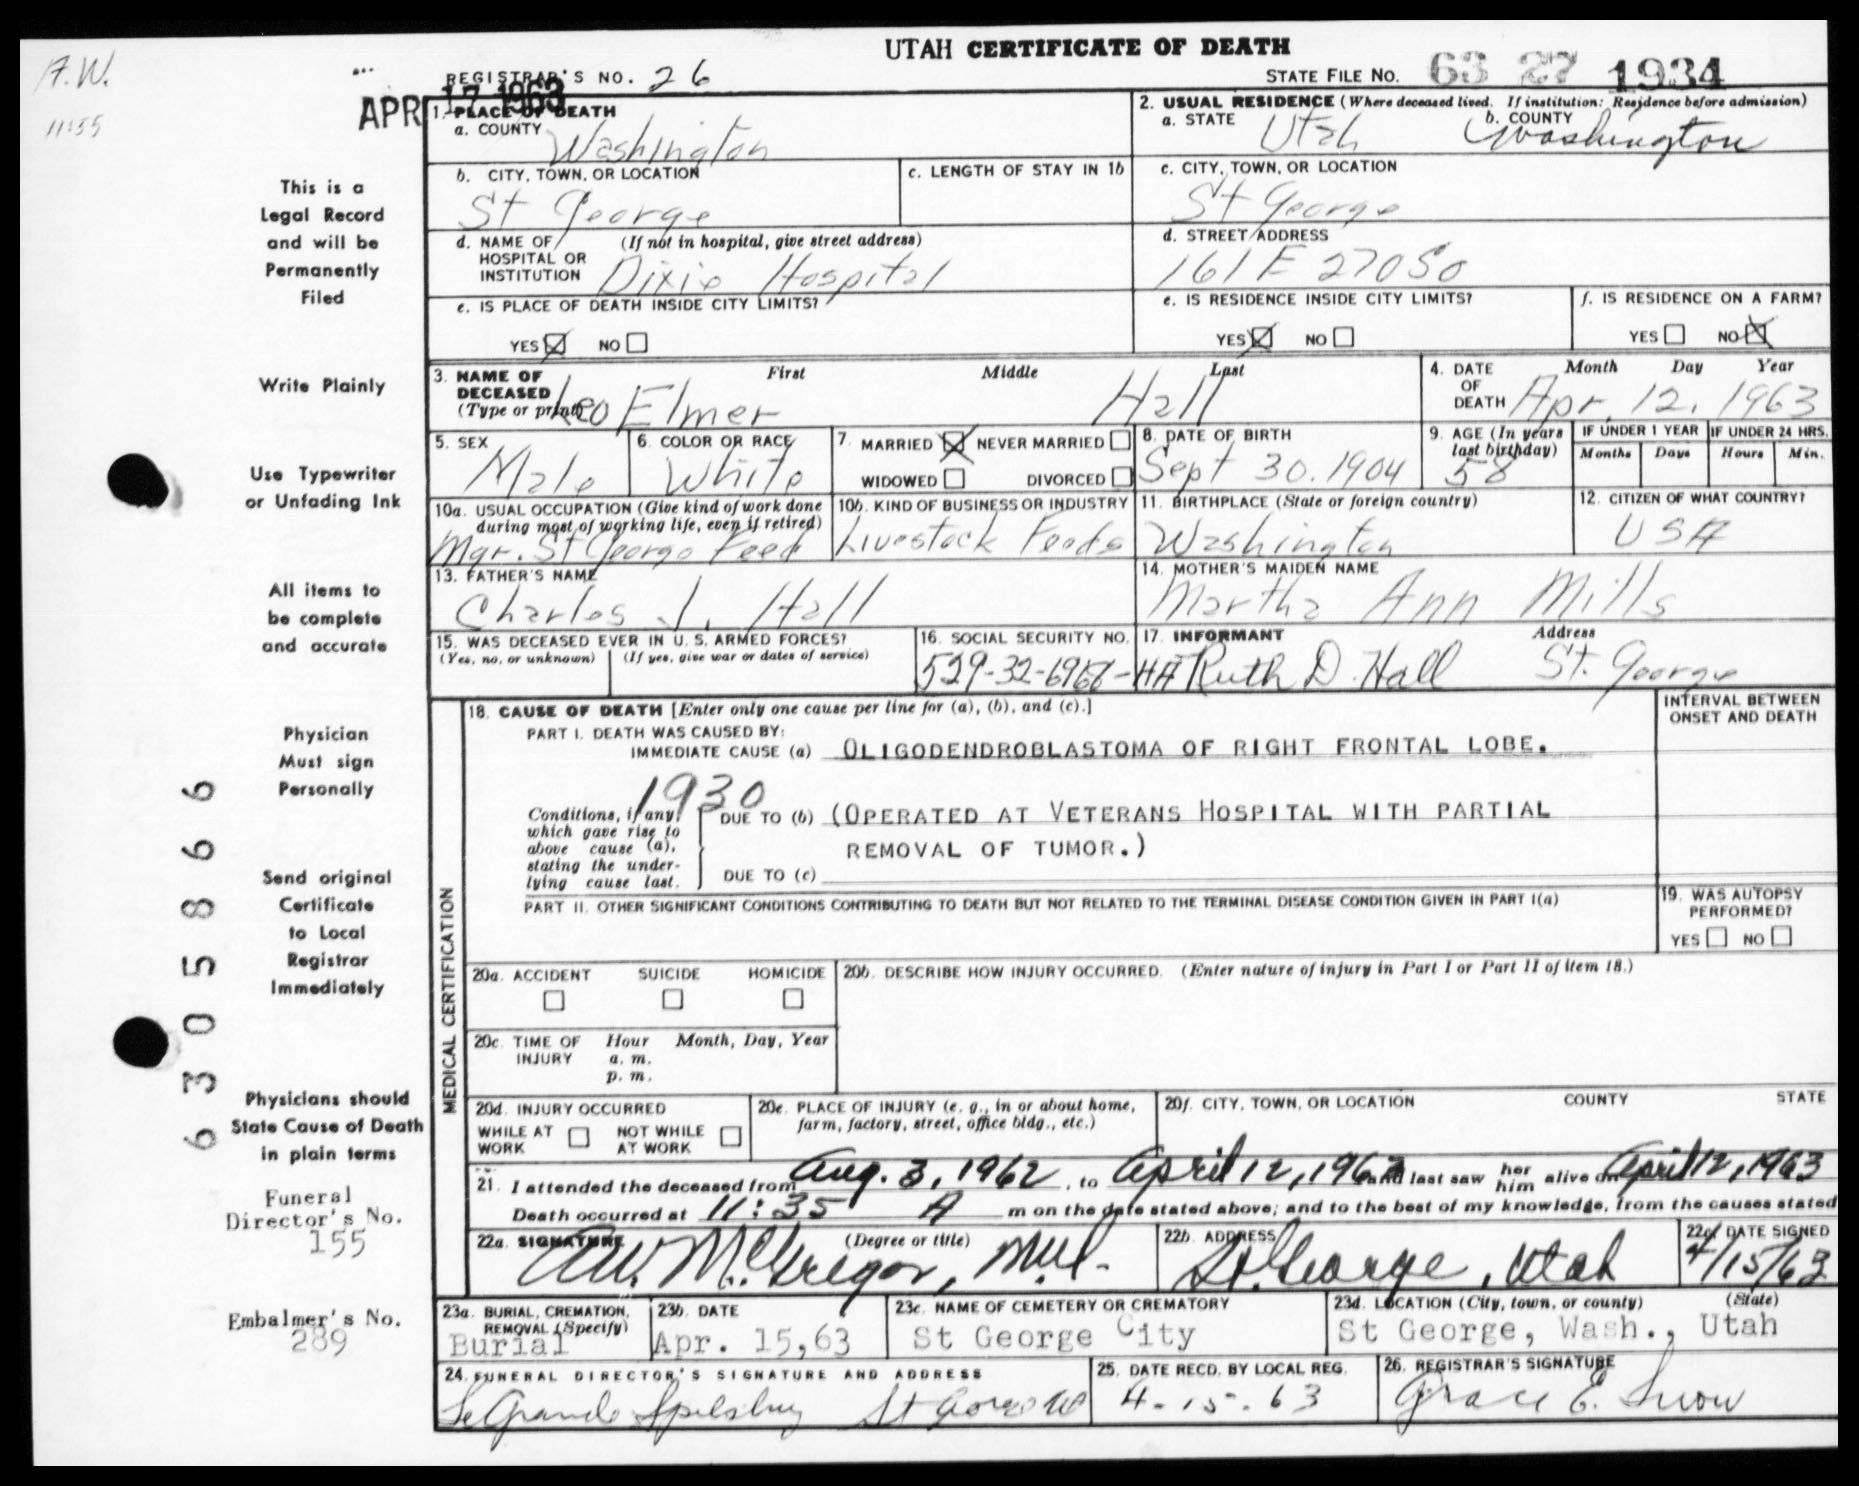 UTAH CERTIFICATE OF DEATH
A.W.
11:55
REGISTRAR'S NO. 26
STATE FILE NO. 63 27 1934
APR 17 1963
1. PLACE OF DEATH
a. COUNTY Washington
2. USUAL RESIDENCE (Where deceased lived. If institution: Residence before admission)
a. STATE Utah b. COUNTY Washington
b. CITY, TOWN, OR LOCATION St George
c. LENGTH OF STAY IN 1b
c. CITY, TOWN, OR LOCATION St George
d. NAME OF HOSPITAL OR INSTITUTION (If not in hospital, give street address) Dixie Hospital
d. STREET ADDRESS 161 E 270 So
e. IS PLACE OF DEATH INSIDE CITY LIMITS?
YES NO
e. IS RESIDENCE INSIDE CITY LIMITS?
YES NO
f. IS RESIDENCE ON A FARM?
YES NO
3. NAME OF DECEASED (Type or print) First Middle Last
Leo Elmer Hall
4. DATE OF DEATH Month Day Year
Apr. 12, 1963
5. SEX Male
6. COLOR OR RACE White
7. MARRIED NEVER MARRIED
WIDOWED DIVORCED
8. DATE OF BIRTH Sept 30. 1904
9. AGE (In years last birthday) 58
IF UNDER 1 YEAR Months Days
IF UNDER 24 HRS. Hours Min.
10a. USUAL OCCUPATION (Give kind of work done during most of working life, even if retired)
Mgr. St George Feed
10b. KIND OF BUSINESS OR INDUSTRY
Livestock Feeds
11. BIRTHPLACE (State or foreign country)
Washington
12. CITIZEN OF WHAT COUNTRY?
USA
13. FATHER'S NAME
Charles J. Hall
14. MOTHER'S MAIDEN NAME
Martha Ann Mills
15. WAS DECEASED EVER IN U. S. ARMED FORCES?
(Yes, no, or unknown) (If yes, give war or dates of service)
16. SOCIAL SECURITY NO.
529-32-6968-HA
17. INFORMANT Address
Ruth D. Hall St. George
MEDICAL CERTIFICATION
18. CAUSE OF DEATH [Enter only one cause per line for (a), (b), and (c).]
PART I. DEATH WAS CAUSED BY:
IMMEDIATE CAUSE (a) OLIGODENDROBLASTOMA OF RIGHT FRONTAL LOBE.
INTERVAL BETWEEN ONSET AND DEATH
1930
Conditions, if any, which gave rise to above cause (a), stating the underlying cause last.
DUE TO (b) (OPERATED AT VETERANS HOSPITAL WITH PARTIAL
REMOVAL OF TUMOR.)
DUE TO (c)
PART II. OTHER SIGNIFICANT CONDITIONS CONTRIBUTING TO DEATH BUT NOT RELATED TO THE TERMINAL DISEASE CONDITION GIVEN IN PART I(a)
19. WAS AUTOPSY PERFORMED?
YES NO
20a. ACCIDENT SUICIDE HOMICIDE
20b. DESCRIBE HOW INJURY OCCURRED. (Enter nature of injury in Part I or Part II of item 18.)
20c. TIME OF INJURY Hour Month, Day, Year
a. m.
p. m.
20d. INJURY OCCURRED
WHILE AT WORK NOT WHILE AT WORK
20e. PLACE OF INJURY (e. g., in or about home, farm, factory, street, office bldg., etc.)
20f. CITY, TOWN, OR LOCATION COUNTY STATE
21. I attended the deceased from Aug. 3, 1962, to April 12, 1963 and last saw her him alive on April 12, 1963
Death occurred at 11:35 A m on the date stated above; and to the best of my knowledge, from the causes stated
22a. SIGNATURE (Degree or title)
A.W. McGregor, M.D.
22b. ADDRESS
St. George, Utah
22c. DATE SIGNED
4/15/63
23a. BURIAL, CREMATION, REMOVAL (Specify)
Burial
23b. DATE
Apr. 15,63
23c. NAME OF CEMETERY OR CREMATORY
St George City
23d. LOCATION (City, town, or county) (State)
St George, Wash., Utah
24. FUNERAL DIRECTOR'S SIGNATURE AND ADDRESS
LeGrande Spilsbury St George Ut
25. DATE RECD. BY LOCAL REG.
4-15-63
26. REGISTRAR'S SIGNATURE
Grace E. Snow
This is a
Legal Record
and will be
Permanently
Filed
Write Plainly
Use Typewriter
or Unfading Ink
All items to
be complete
and accurate
Physician
Must sign
Personally
Send original
Certificate
to Local
Registrar
Immediately
Physicians should
State Cause of Death
in plain terms
Funeral
Director's No.
155
Embalmer's No.
289
630 5866